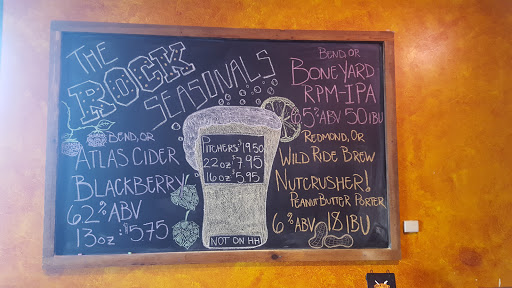 THE
ROCK
SEASONALS
BEND, OR
ATLAS CIDER
BLACKBERRY
62% ABV
13oz : $575
PITCHERS $19.50
22oz $7.95
16oz $5.95
NOT ON HH
BEND OR
BONEYARD
RPM-IPA
65% ABV 50 IBU
REDMOND, OR
WILD RIDE BREW
NUTCRUSHER!
PEANUT BUTTER PORTER
6% ABV 18 IBU